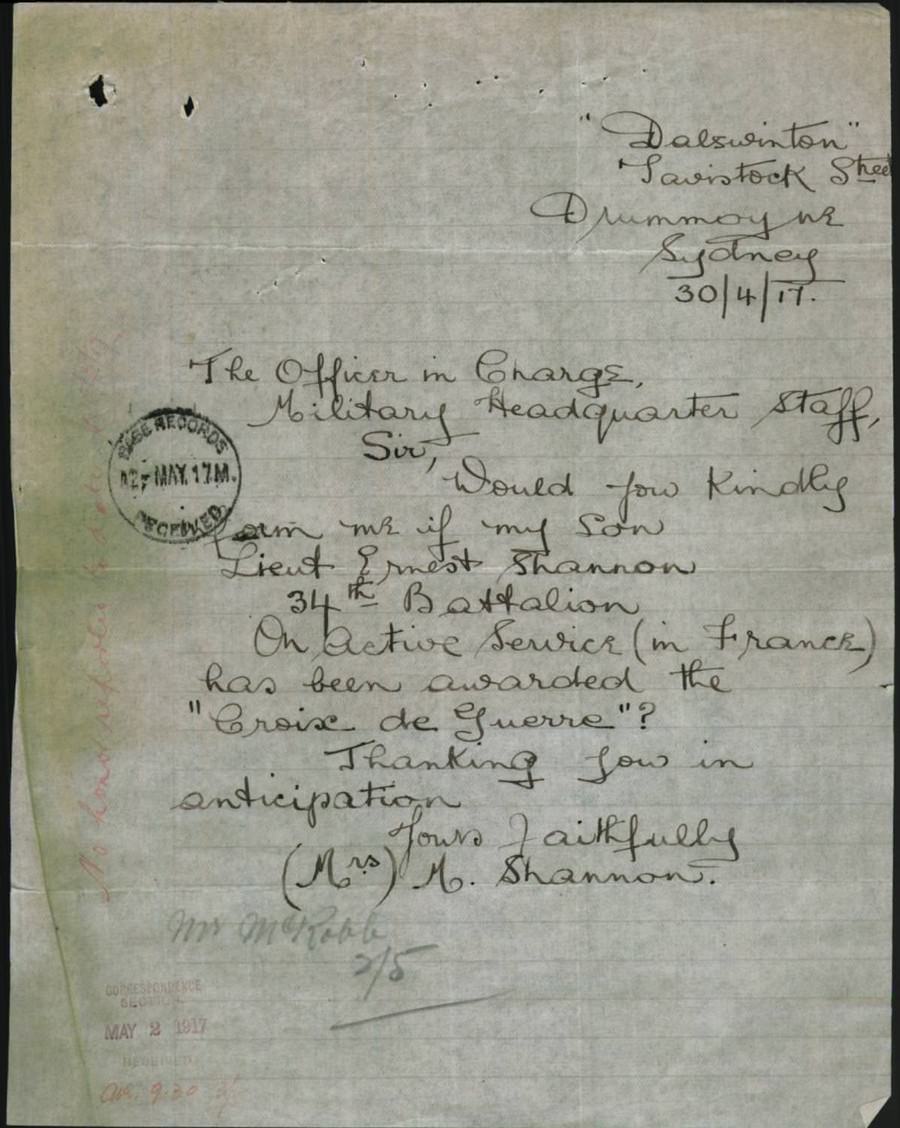 "Dalswinton"
Tavistock Street
Drummoyne
Sydney
30/4/17.
The Officer in Charge,
Military Headquarter Staff,
Sir,
Would you Kindly
BASE RECORDS
2 - MAY. 17 M.
RECEIVED
me if my Son
Lieut Ernest Shannon
34th Battalion
On Active Service (in France)
has been awarded the
"Croix de Guerre"?
Thanking you in
anticipation
Yours Faithfully
(Mrs) M. Shannon.
Mr McRobb
2/5
CORRESPONDENCE
SECTION
MAY 2 1917
RECEIVED
9.30
No honor reported to date